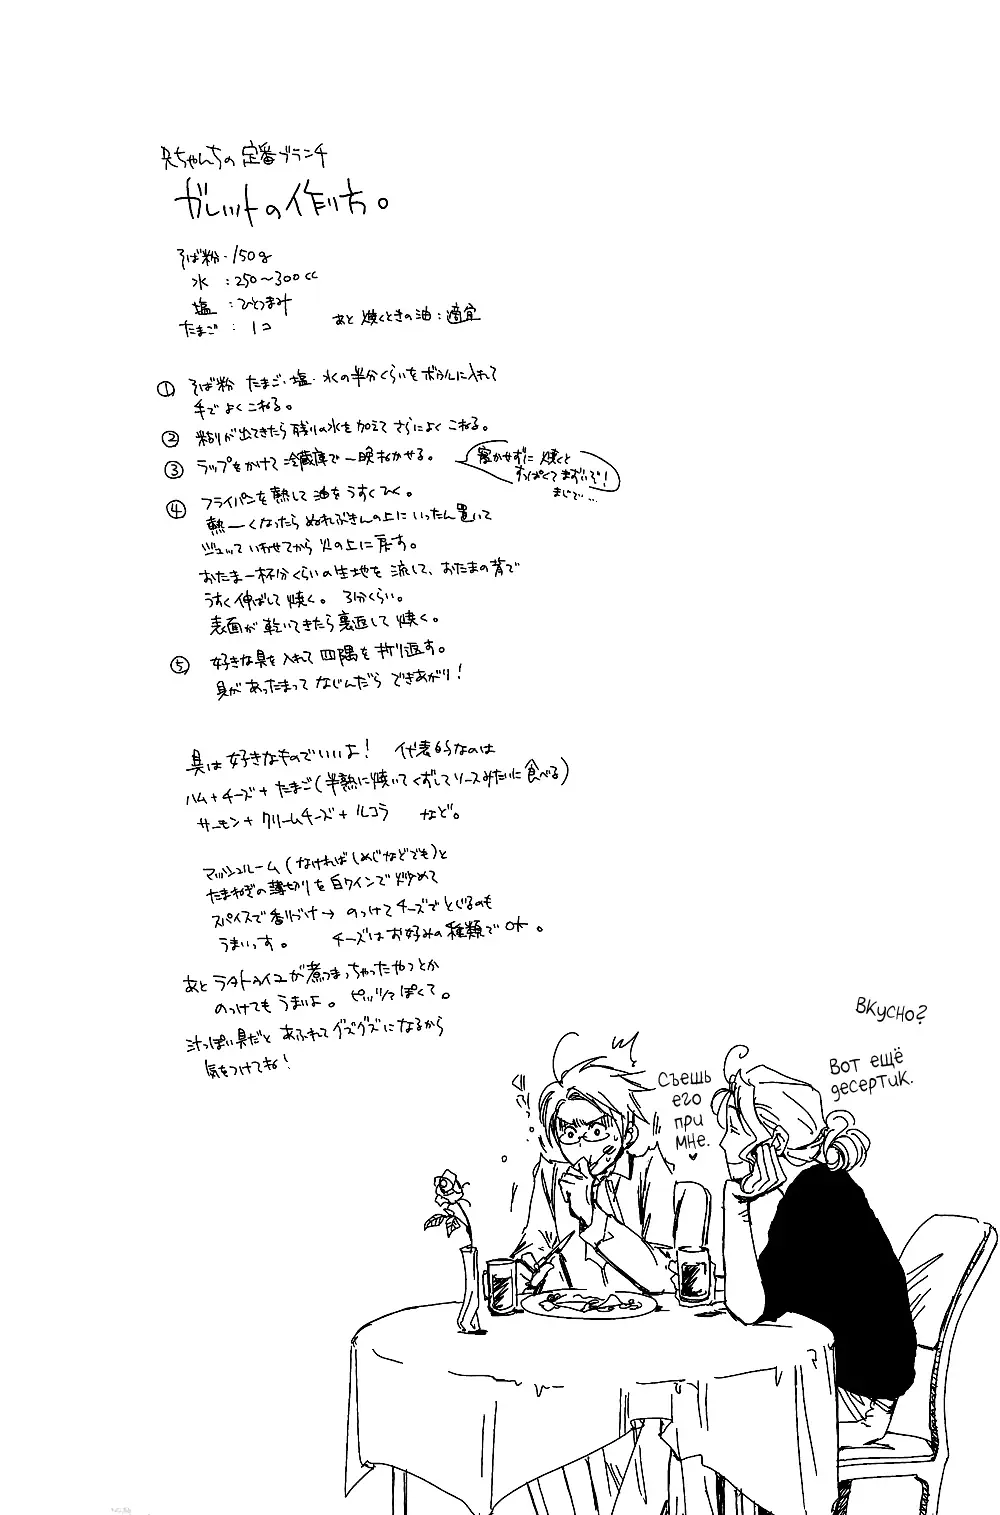 兄ちゃんちの定番ブランチ
ガレットの作り方。
そば粉・150g
水 :250〜300cc
塩 :ひとつまみ
たまご : 1コ
あと 焼くときの油:適宜
① そば粉 たまご・塩・水の半分くらいをボウルに入れて
手でよくこねる。
② 粘りが出てきたら残りの水を加えてさらによくこねる。
③ ラップをかけて冷蔵庫で一晩ねかせる。
寝かせずに焼くと
すっぱくてまずいで!
まじで…
④ フライパンを熱して油をうすくひく。
熱ーくなったらぬれぶきんの上にいったん置いて
ジュッていわせてから火の上に戻す。
おたま一杯分くらいの生地を流して、おたまの背で
うすく伸ばして焼く。 3分くらい。
表面が乾いてきたら裏返して焼く。
⑤ 好きな具を入れて四隅を折り返す。
具があったまってなじんだらできあがり!
具は好きなものでいいよ! 代表的なのは
ハム+チーズ+たまご(半熟に焼いてくずしてソースみたいに食べる)
サーモン+クリームチーズ+ルコラ など。
マッシュルーム(なければしめじなどでも)と
たまねぎの薄切りを白ワインで炒めて
スパイスで香りづけ→のっけてチーズでとじるのも
うまいっす。 チーズはお好みの種類でOK。
あとラタトゥイユが煮つまっちゃったやつとか
のっけてもうまいよ。ピッツァぽくて。
汁っぽい具だとあふれてグズグズになるから
気をつけてね!
Вкусно?
Вот ещё
десертик.
Съешь
его
при
мне.